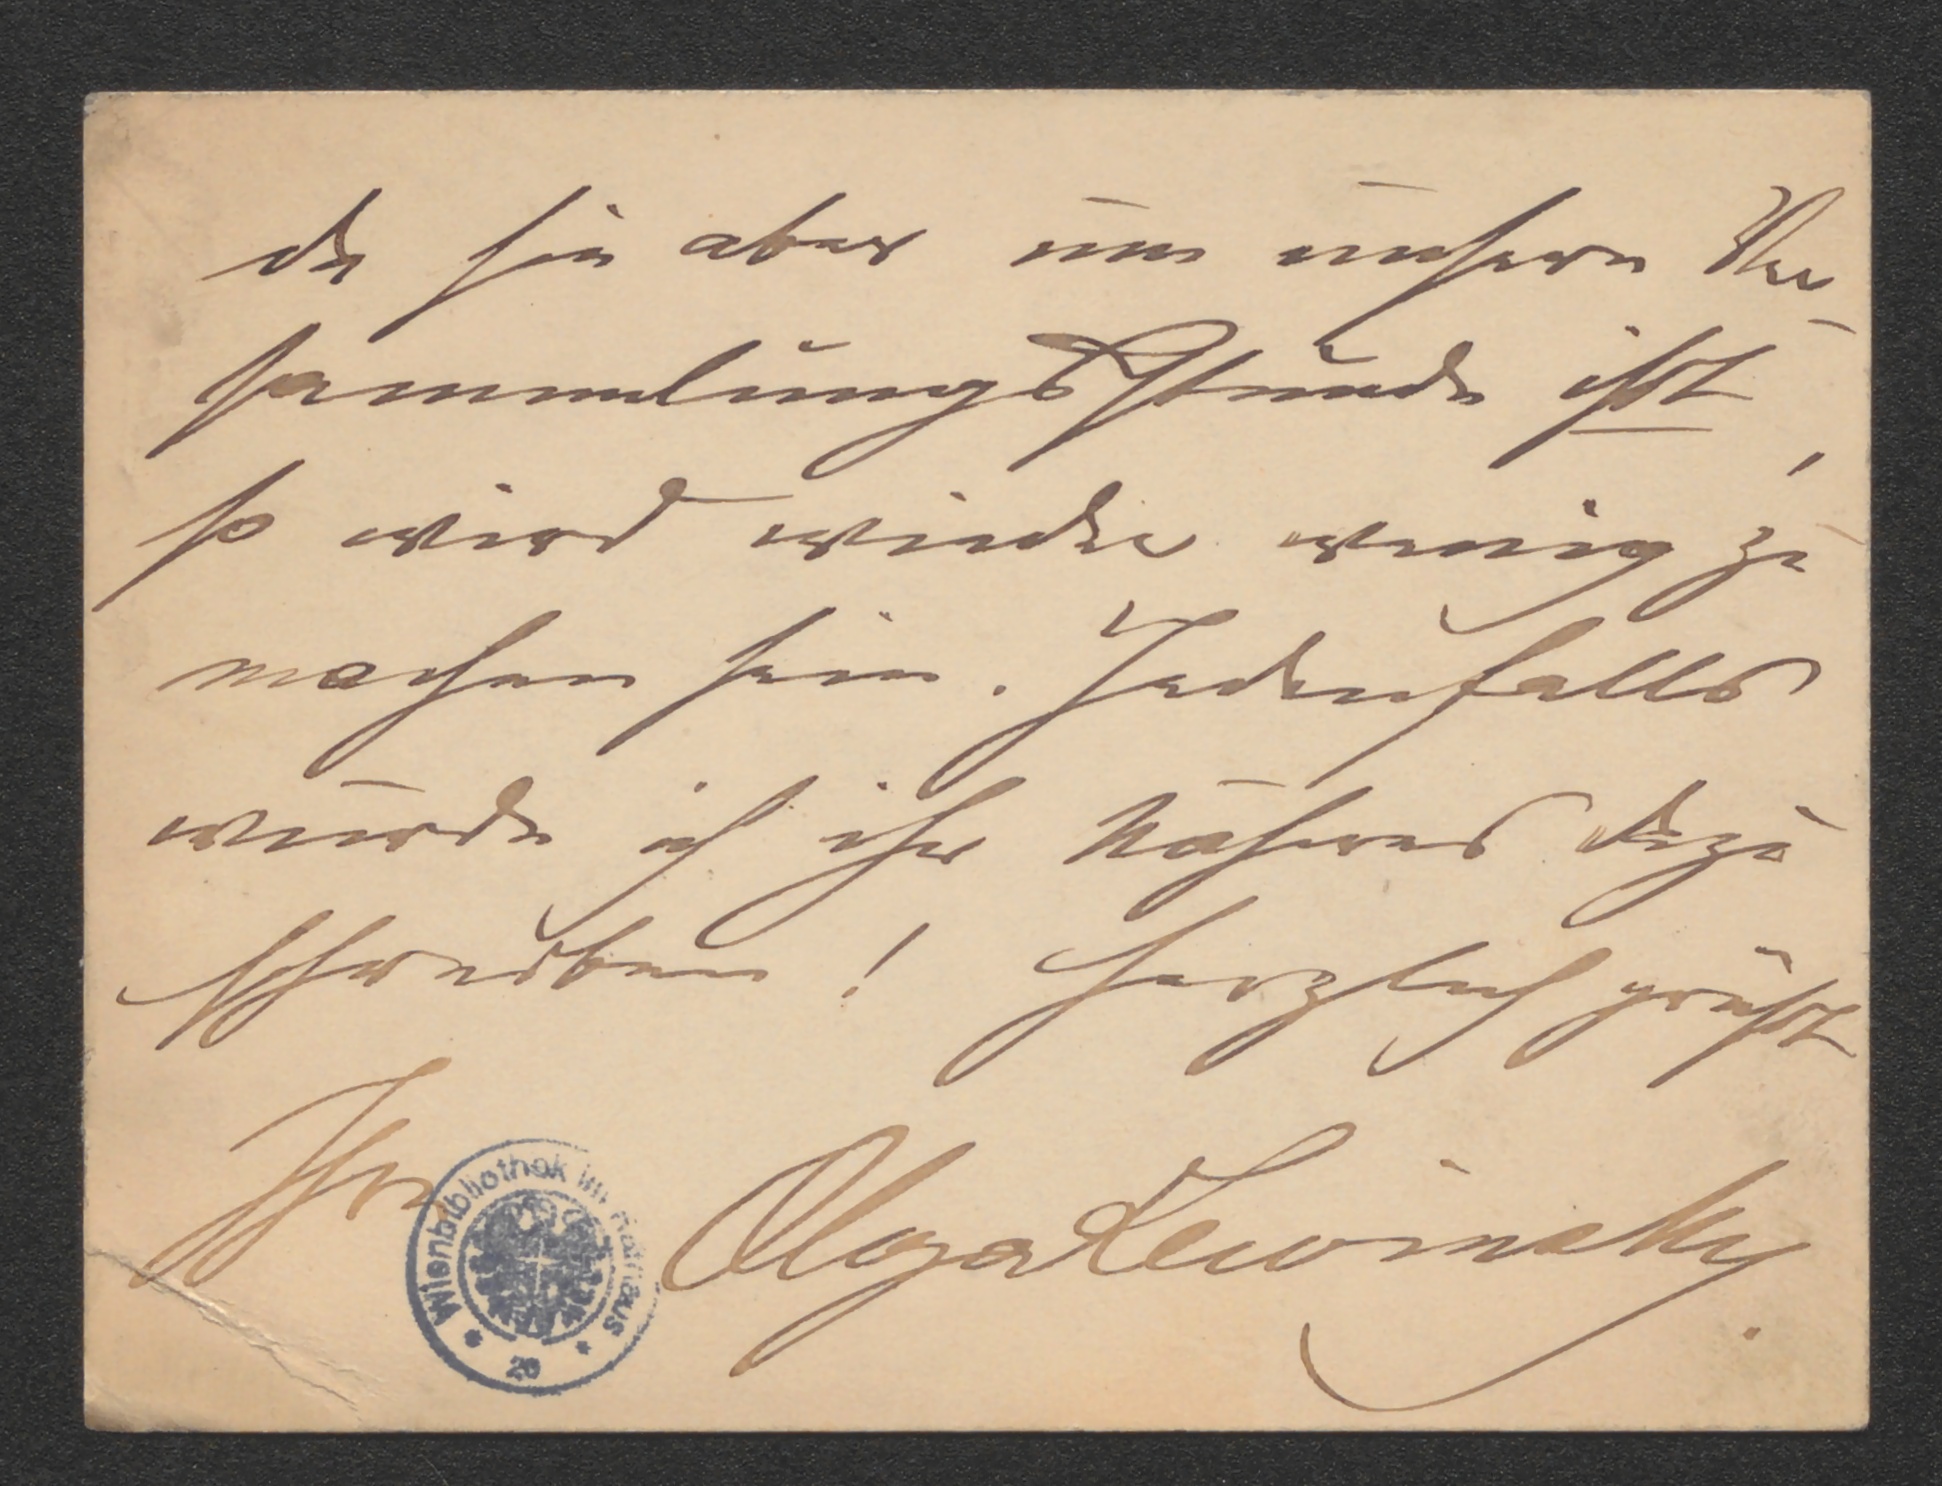 da sie aber um unsere Ver-
sammlungsstunde ist,
so wird wieder wenig zu
machen sein. Jedenfalls
würde ich ihr Näheres dazu
schreiben! Herzlich grüßt
Ihre Olga Lewinsky.
Wienbibliothek im Rathaus
20